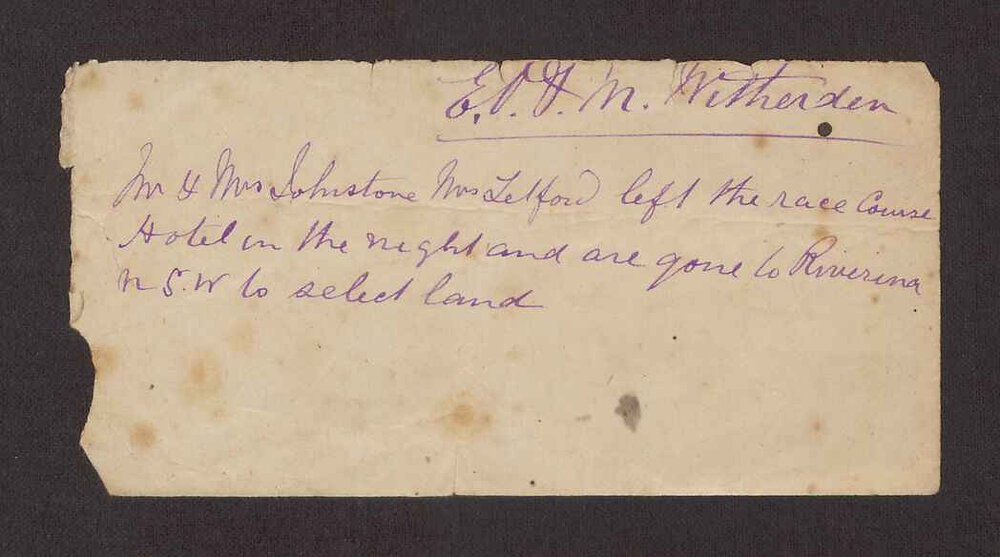 E. P. F. M. Witherden
Mr & Mrs Johnstone Mrs Telford left the race Course
Hotel in the night and are gone to Riverina
N S. W to select land